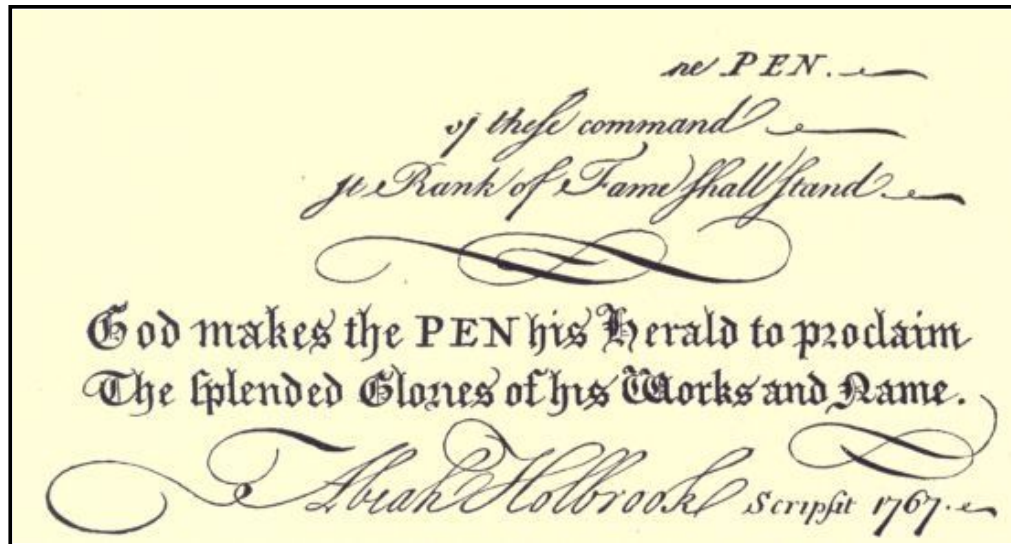 he PEN.
of theſe command
ſt Rank of Fame ſhall ſtand
God makes the PEN his Herald to proclaim
The ſplended Glories of his Works and Name.
Abiah Holbrook Scripſit 1767.